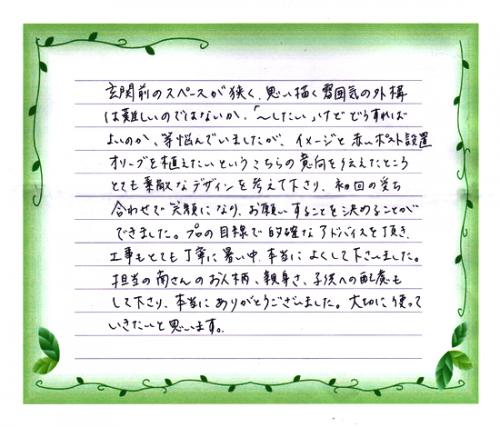 玄関前のスペースが狭く、思い描く雰囲気の外構
は難しいのではないか、「〜したい」けどどうすれば
よいのか、等悩んでいましたが、イメージと赤いポスト設置
オリーブを植えたいというこちらの意向を伝えたところ
とても素敵なデザインを考えて下さり、初回の打ち
合わせで笑顔になり、お願いすることを決めることが
できました。プロの目線で的確なアドバイスを頂き、
工事もとても丁寧に暑い中、本当によくして下さいました。
担当の南さんのお人柄、親身さ、子供への配慮も
して下さり、本当にありがとうございました。大切に使って
いきたいと思います。